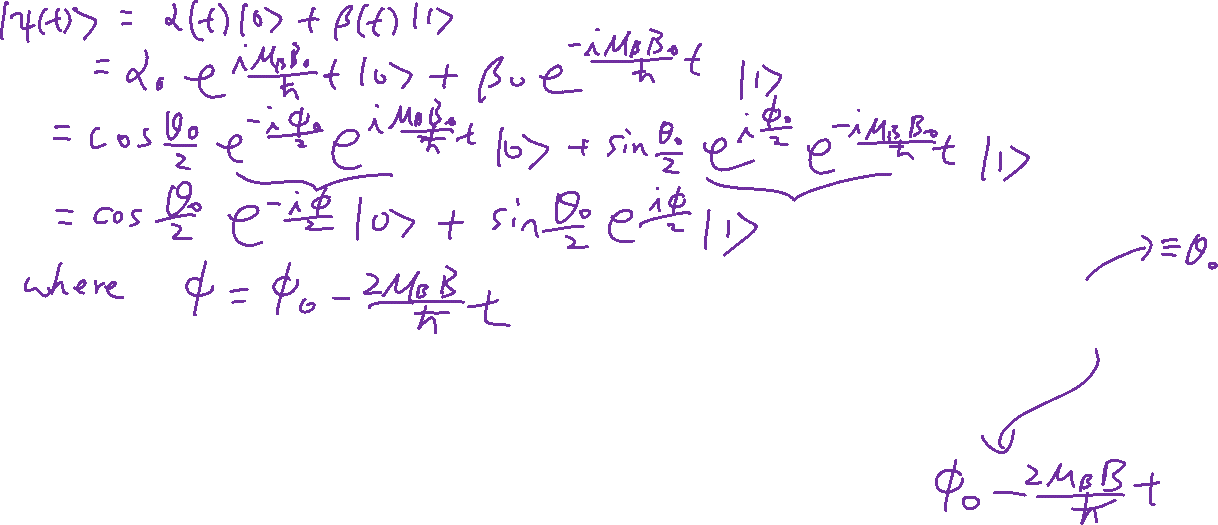 |ψ(t)> = α(t)|0> + β(t)|1>
= α₀ e^{iμ_B B₀/ħ t} |0> + β₀ e^{-iμ_B B₀/ħ t} |1>
= cos θ₀/2 e^{-i ϕ₀/2} e^{i μ_B B₀/ħ t} |0> + sin θ₀/2 e^{i ϕ₀/2} e^{-i μ_B B₀/ħ t} |1>
= cos θ₀/2 e^{-i ϕ/2} |0> + sin θ₀/2 e^{i ϕ/2} |1>
→ ≡ θ₀
where ϕ = ϕ₀ - 2μ_B B/ħ t
ϕ₀ - 2μ_B B/ħ t